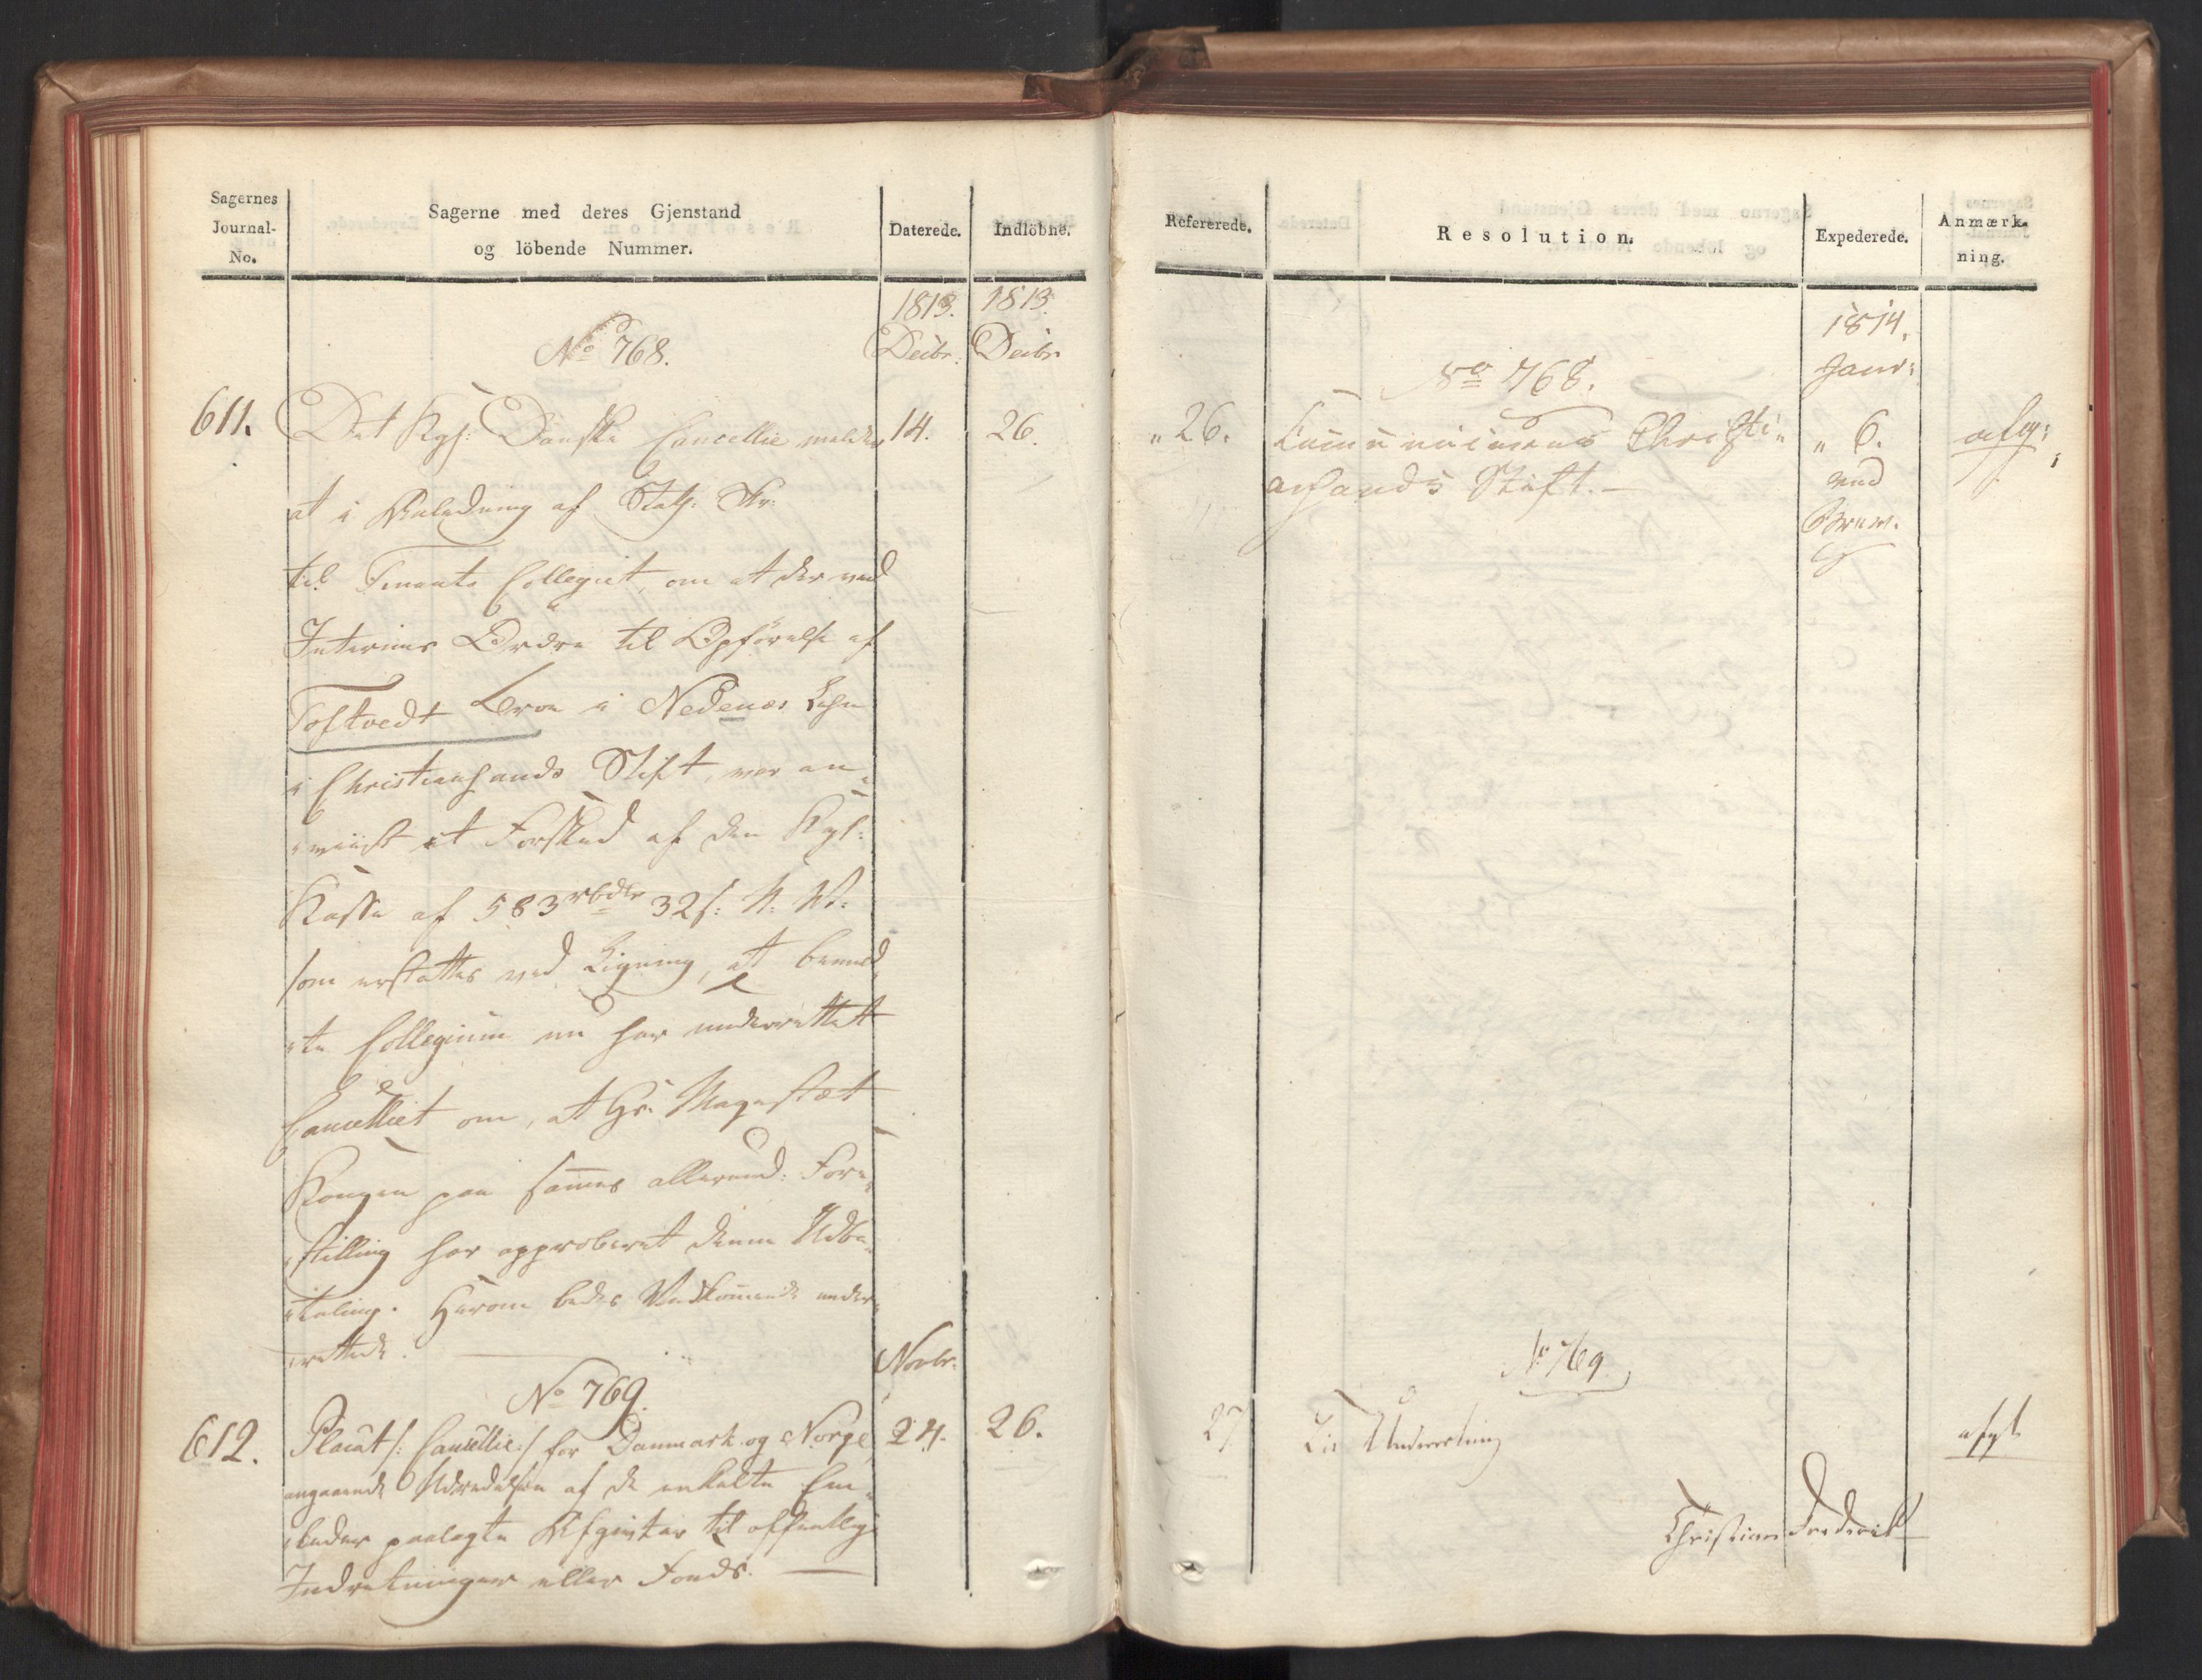 Sagernes
Journal-
No.
Sagerne med deres Gjenstand
og löbende Nummer.
Daterede.
Indlöbne.
1813. 1813.
Decbr. Decbr.
No 768.
611. Det Kgl: Danske Cancellie melder 14. 26.
at i Anledning af Stath: Skr:
til Finants Collegiet, om at der ved
Interims Ordre til Opførelse af
Tostvedt Broe i Nedenæs Lehn
i Christiansands Stift, var an-
viist et Forskud af den Kgl:
Kasse af 583 rbdlr 32 s: N: V:
som erstattes ved Ligning, at bemeld
te Collegium nu har underrettet
Cancelliet om, at Hs: Majestæt
Kongen paa sammes allerund: Fore-
stilling har approberet denne Udbe-
taling. Herom bedes Vedkommende under-
rettede.
Novbr.
No 769.
612. Placat /: Cancellie :/ for Danmark og Norge 24. 26.
angaaende Udredelsen af de enkelte Em-
beder paalagte Afgivter til offentlige
Indretninger eller Fonds.
Refererede.
Resolution.
Expederede.
Anmærk-
ning.
1814.
Janv:
No 768.
" 26. Communiceres Christi- " 6. afg:
ansands Stift. ved
Brev.
No 769
27 Til Underretning afgl
Christian Frederik